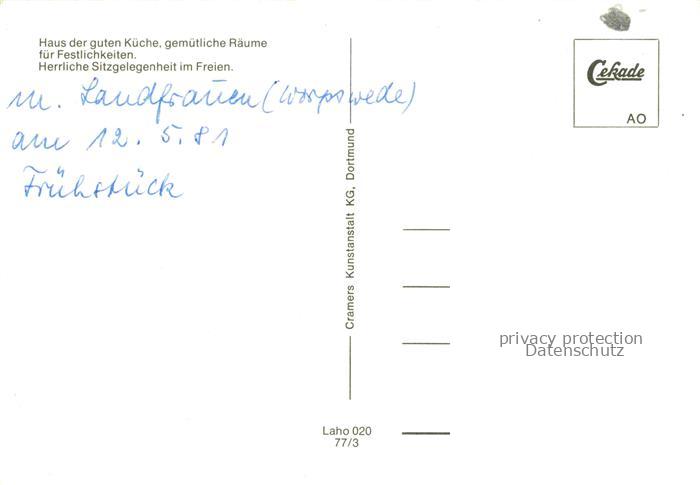 Haus der guten Küche, gemütliche Räume
für Festlichkeiten.
Herrliche Sitzgelegenheit im Freien.
m. Landfrauen (Worpswede)
am 12. 5. 81
Frühstück
Cramers Kunstanstalt KG, Dortmund
Cekade
AO
privacy protection
Datenschutz
Laho 020
77/3